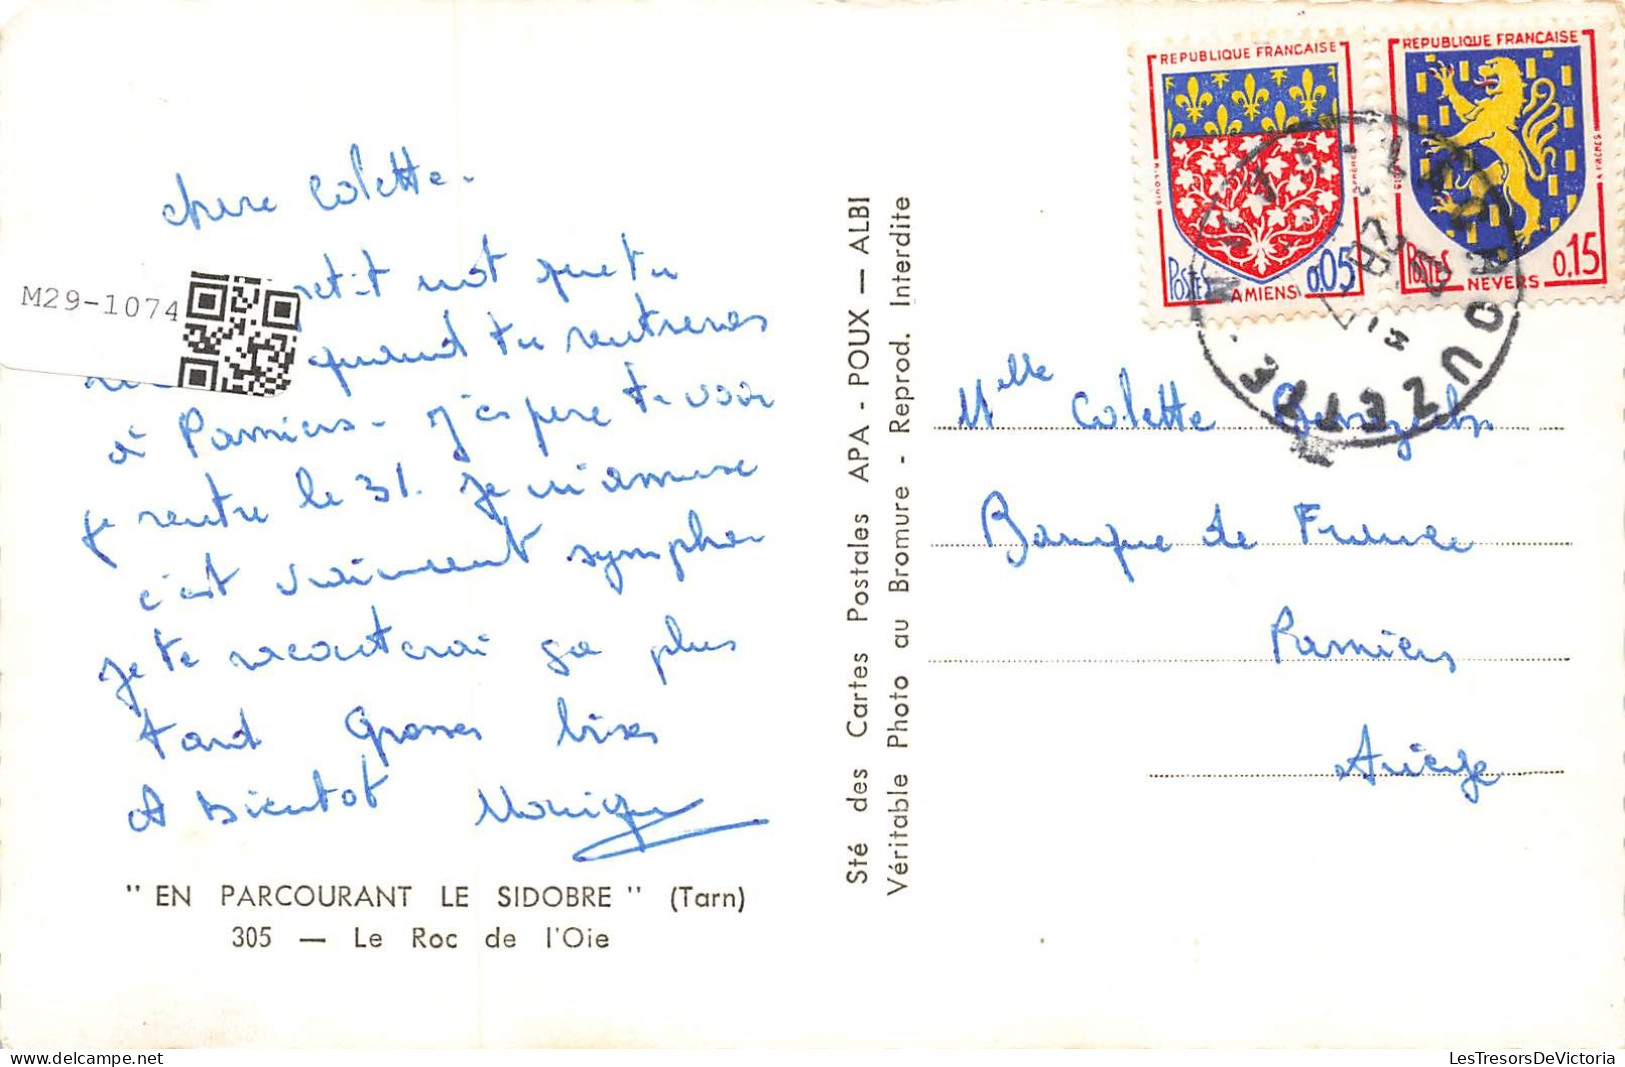 Chere Colette.
petit mot que tu
quand tu rentreras
à Pamiers - J'espere te voir
je rentre le 31. Je m'amuse
c'est vraiment sympha
je te raconterai ça plus
tard Grosses bises
A Bientot Monique
M29-1074
" EN PARCOURANT LE SIDOBRE " (Tarn)
305 — Le Roc de l'Oie
Sté des Cartes Postales APA - POUX — ALBI
Véritable Photo au Bromure - Reprod. Interdite
REPUBLIQUE FRANCAISE
POSTES AMIENS 0,05
REPUBLIQUE FRANCAISE
POSTES NEVERS 0,15
Melle Colette
Banque de France
Pamiers
Ariège
LesTresorsDeVictoria